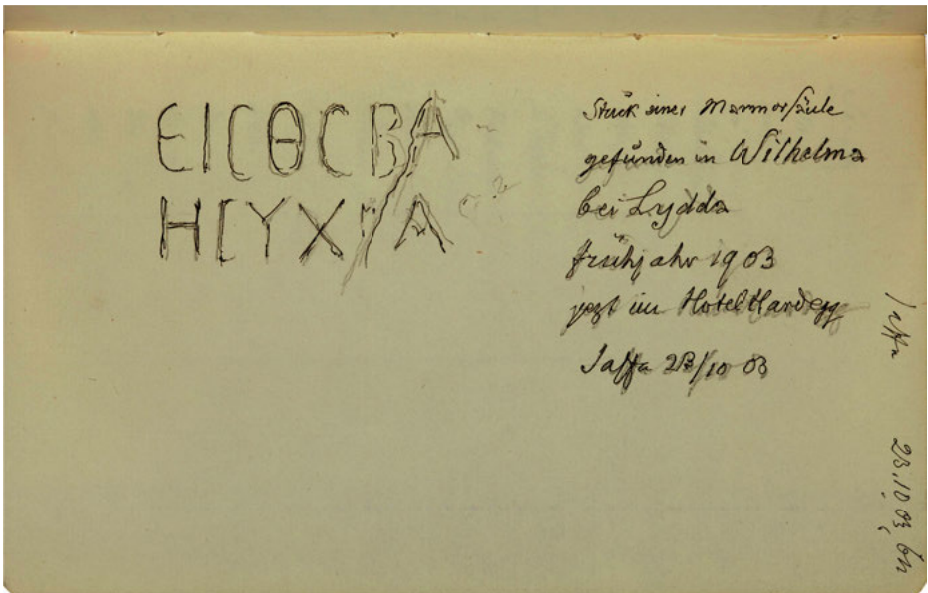 ΕΙϹΘϹΒΑ
ΗϹΥΧΙΑ
Stück einer Marmorsäule
gefunden in Wilhelma
bei Lydda
frühjahr 1903
jezt im Hotel Hardegg
Jaffa 23/10 03
Jaffa 23.10.03,